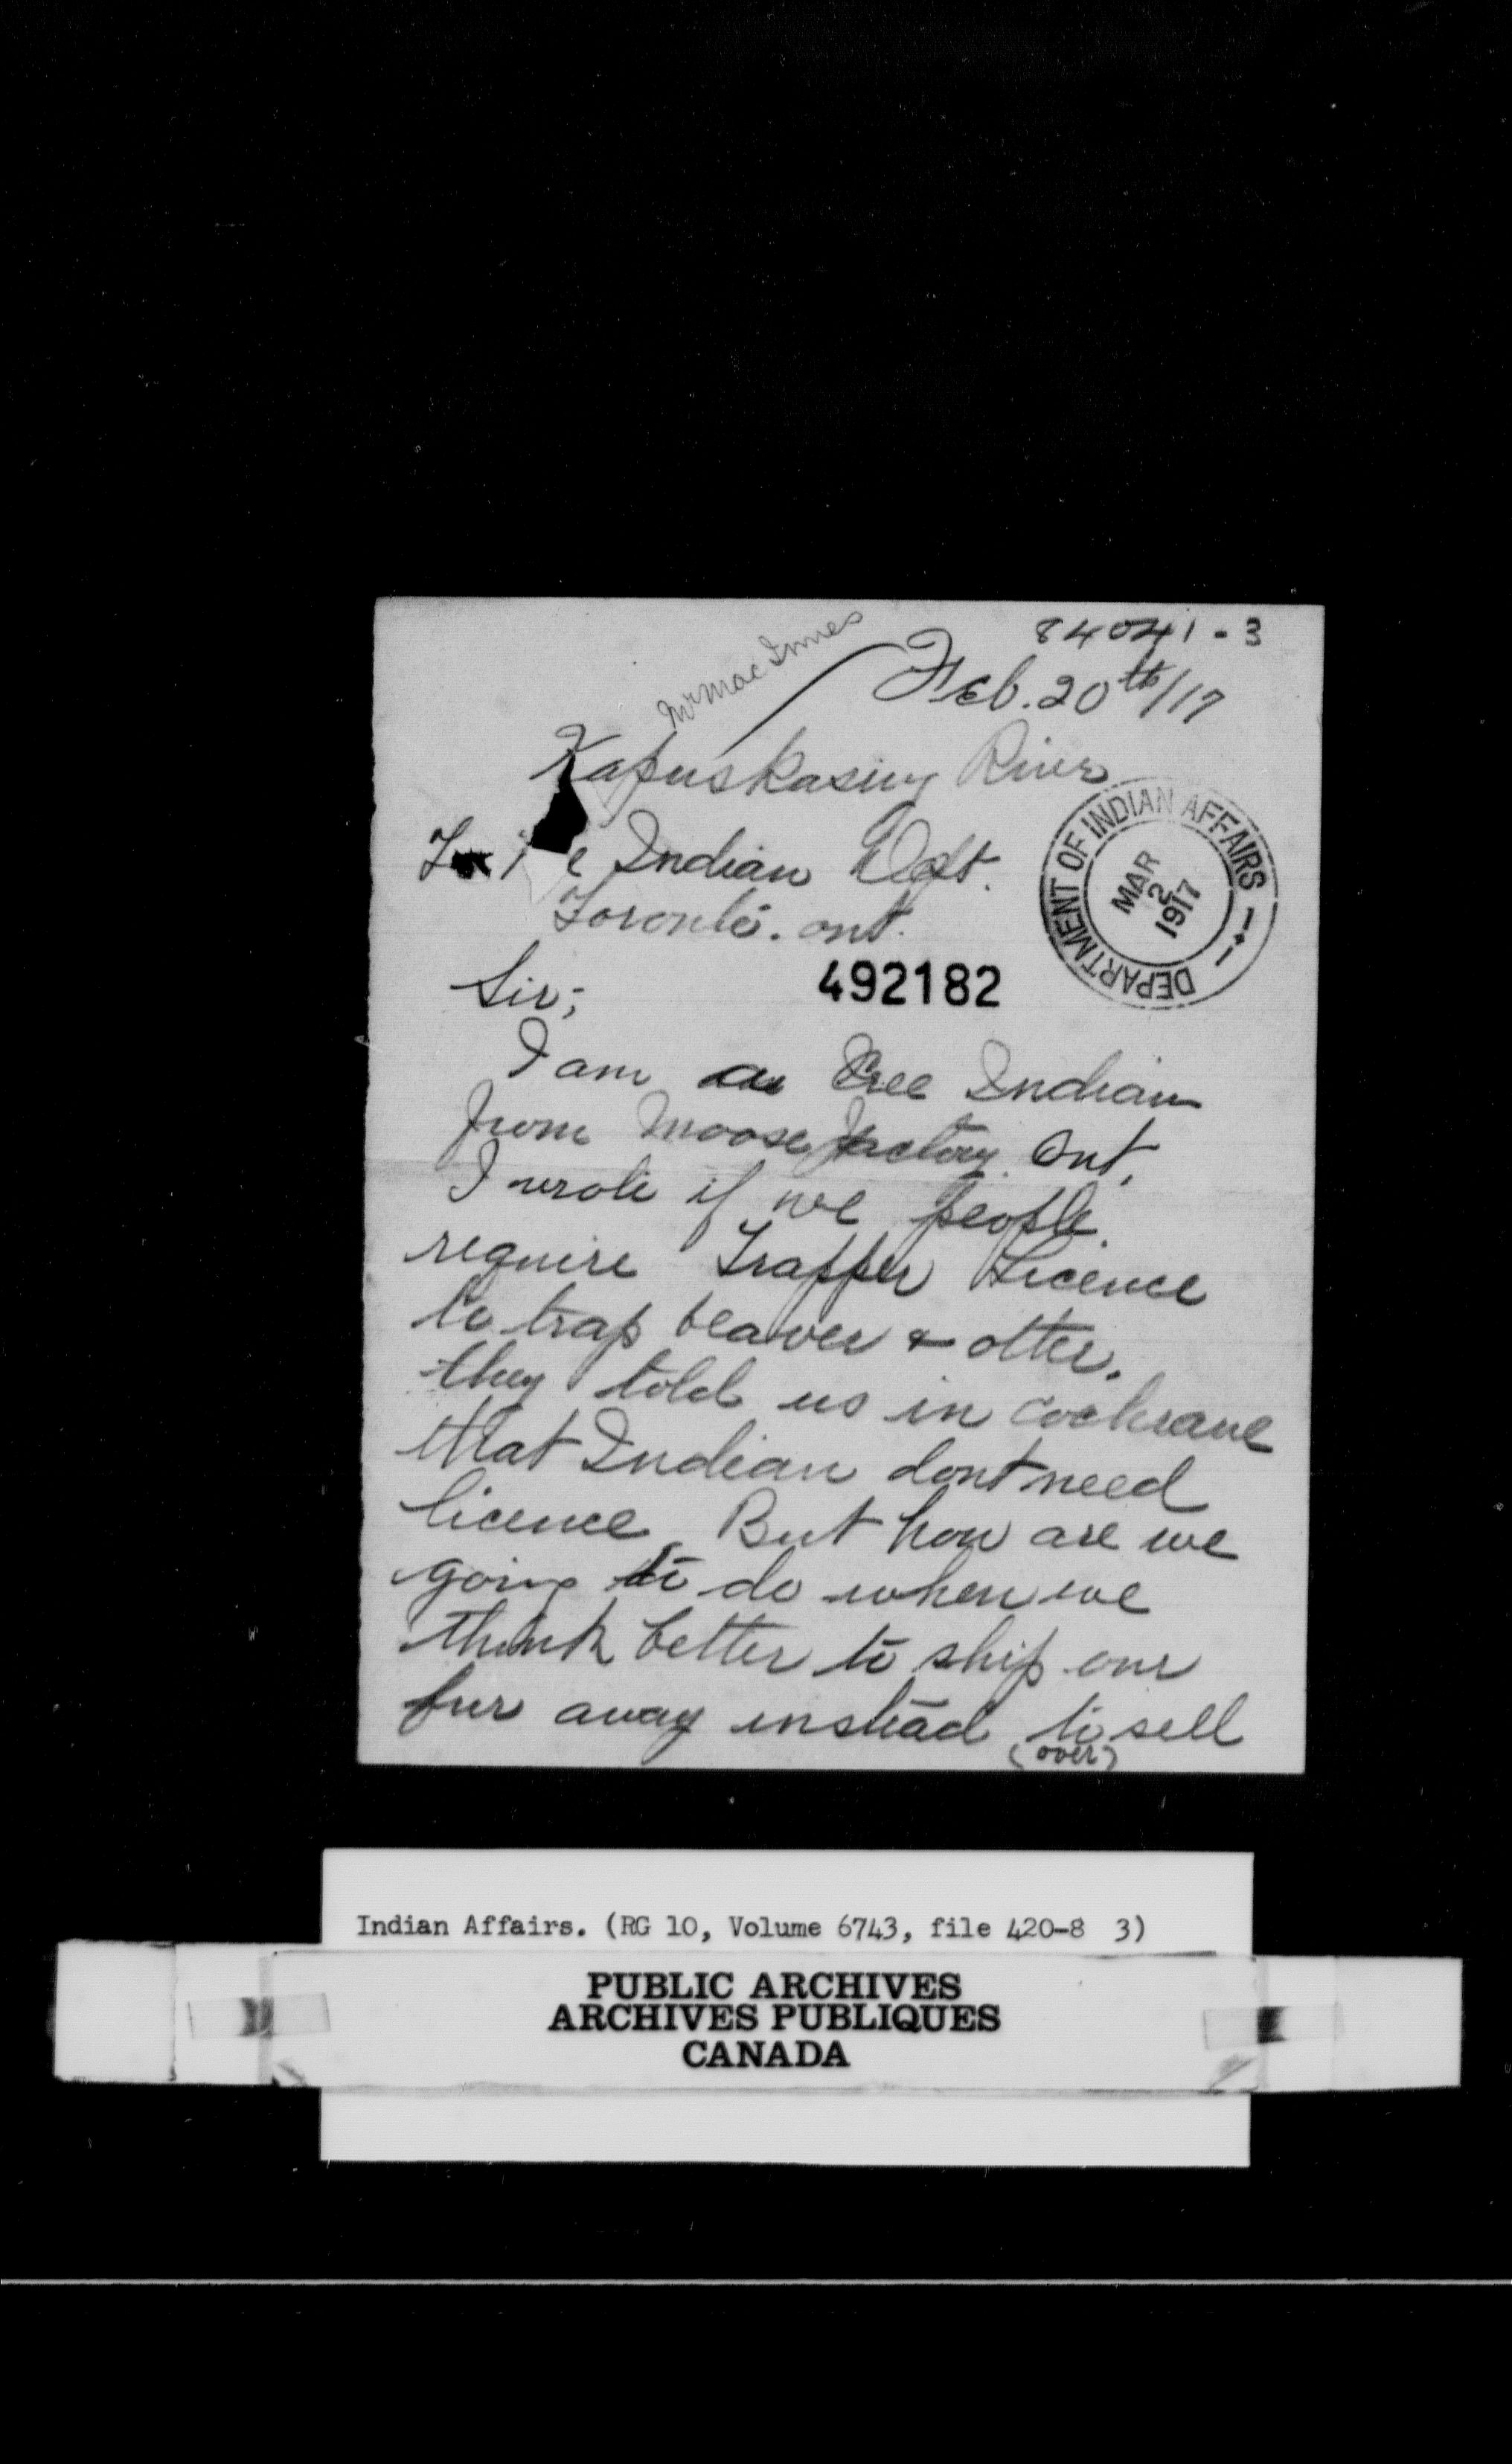 84041-3
Mr MacInnes
Feb. 20th/17
Kapuskasing River
Indian Dept.
Toronto. ont.
DEPARTMENT OF INDIAN AFFAIRS
MAR
2
1917
Sir;
492182
I am a Cree Indian
from Moose Factory. Ont.
I wrote if we people.
require Trapper Licence
to trap beaver & otter.
they told us in cochrane
that Indian dont need
licence But how are we
going to do when we
think better to ship our
fur away instead to sell
(over)
Indian Affairs. (RG 10, Volume 6743, file 420-8 3)
PUBLIC ARCHIVES
ARCHIVES PUBLIQUES
CANADA